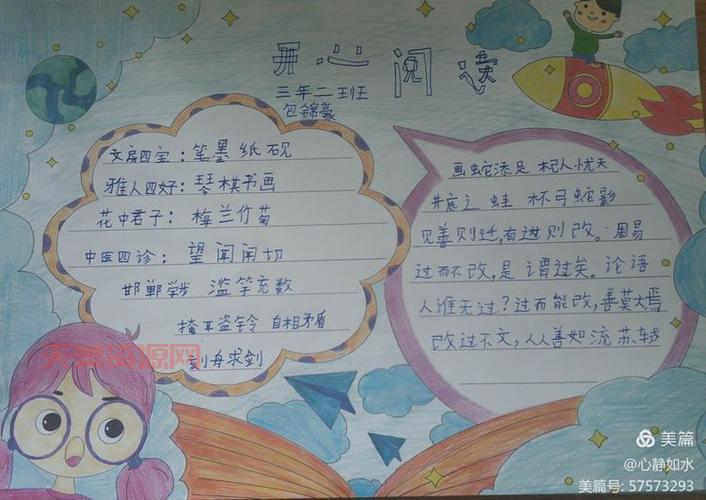 开心阅读
三年二班
包锦豪
文房四宝：笔墨纸砚
雅人四好：琴棋书画
花中君子：梅兰竹菊
中医四诊：望闻闻切
邯郸学 滥竽充数
掩耳盗铃 自相矛盾
刻舟求剑
画蛇添足 杞人忧天
井底之蛙 杯弓蛇影
见善则迁，有过则改。周易
过而不改，是谓过矣。论语
人谁无过？过而能改，善莫大焉
改过不文，从善如流 苏轼
美篇
@心静如水
美篇号: 57573293